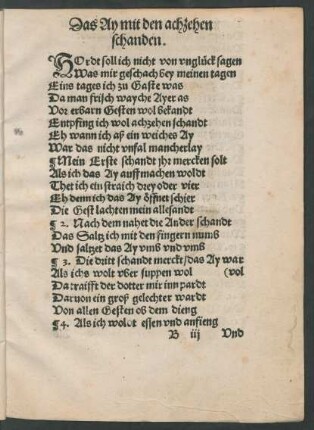 Das Ay mit den achzehen
schanden.
HOrdt soll ich nicht von vnglück sagen
Was mir geschach bey meinen tagen
Eins tages ich zu Gaste was
Da man frisch waycke Ayer as
Vor erbarn Gesten wol bekandt
Entpfing ich wol achzehen schandt
Eh wann ich aß ein weiches Ay
War das nicht vnfal mancherlay
¶ Mein Erste schandt jhr mercken solt
Als ich das Ay auffmachen woldt
Thet ich ein straich drey oder vier
Eh denn ich das Ay öffnet schier
Die Gest lachten mein allesandt
¶ 2. Nach dem nahet die Ander schandt
Das Saltz ich mit den fingern numb
Vnd saltzet das Ay vmb vnd vmb
¶ 3. Die dritt schandt merckt/das Ay war
Als ichs wolt vber suppen wol (vol
Da traifft der dotter mir inn pardt
Daruon ein groß gelechter wardt
Von allen Gesten ob dem dieng
¶ 4. Als ich woldt essen vnd anfieng
B iij Vnd